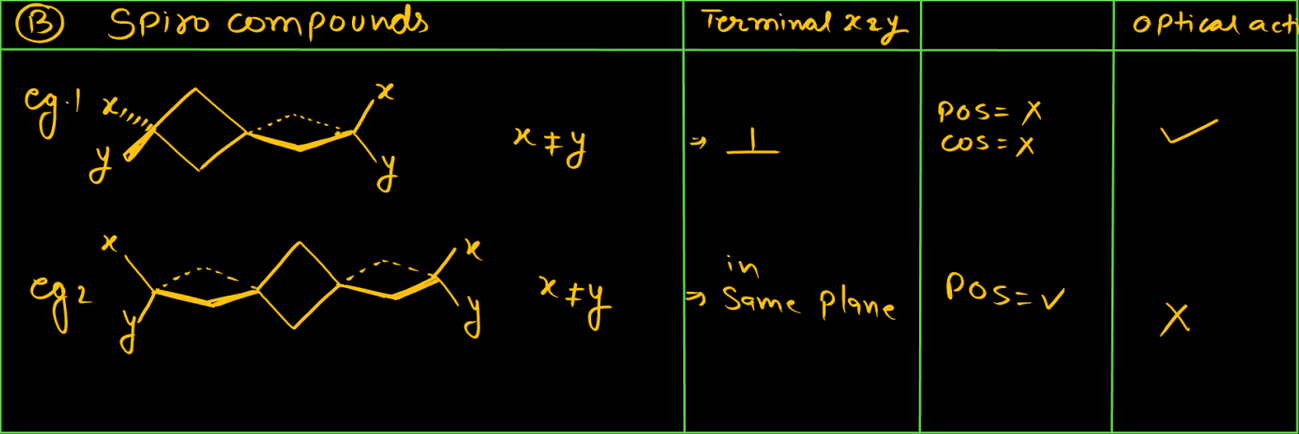 B Spiro compounds Terminal x & y Optical acti
eg.1 x y x y x ≠ y ⇒ ⊥ POS = X
COS = X ✓
eg 2 x y x y x ≠ y ⇒ in
Same plane POS = ✓ X